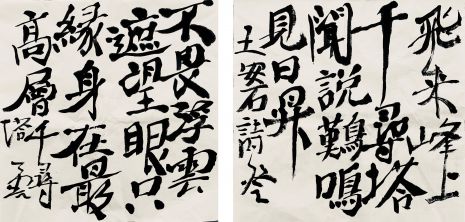 飛来峰上
千尋塔
聞説鷄鳴
見日昇
王安石詩登
不畏浮雲
遮望眼只
緣身在最
高層塔千尋